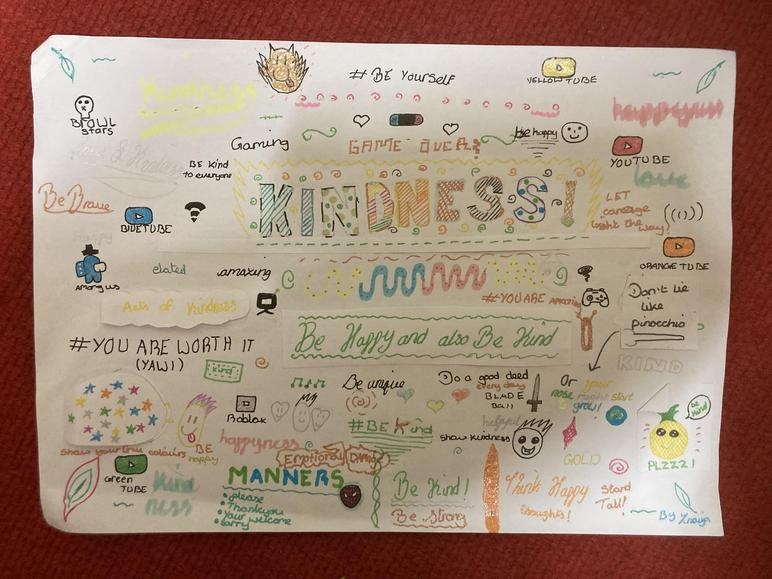 # BE Yourself
YELLOW TUBE
Kindness
happyness
BRAWL
stars
Gaming
GAME OVER?
be happy
YOUTUBE
love
BE Kind
to everyone
KINDNESS!
Be Brave
BLUETUBE
LET
light the way!
ORANGE TUBE
Among us
elated
amazing
#YOU ARE AMAZING
Don't lie
like
pinocchio
Acts of Kindness
Be Happy and also Be Kind
#YOU ARE WORTH IT
(YAWI)
KIND
kind
Be unique
Do a good deed
every day
BLADE
Ball
Or your
nose might start
grow!!
be
kind
Roblox
#BE Kind
helpful
show kindness
Show your true colours
BE
happy
happyness
Emotional Damage
GOLD
PLZZZ!
Green
TUBE
Kind
ness
MANNERS
please
Thankyou
Your welcome
Sorry
Be Kind!
Be Strong
Think Happy
thoughts!
Stand
Tall!
By Znaya